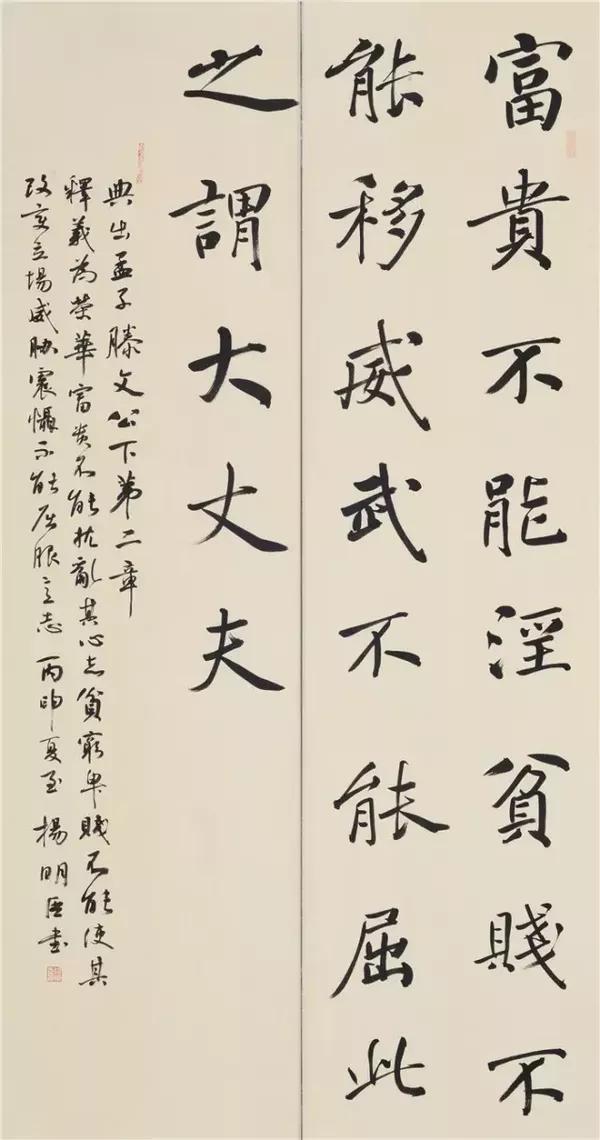 富貴不能淫貧賤不
能移威武不能屈此
之謂大丈夫
典出孟子滕文公下第二章
釋義為榮華富贵不能扰亂其心志貧窮卑賤不能使其
改变立場威胁震慑不能屈服意志 丙申夏至 楊明臣書